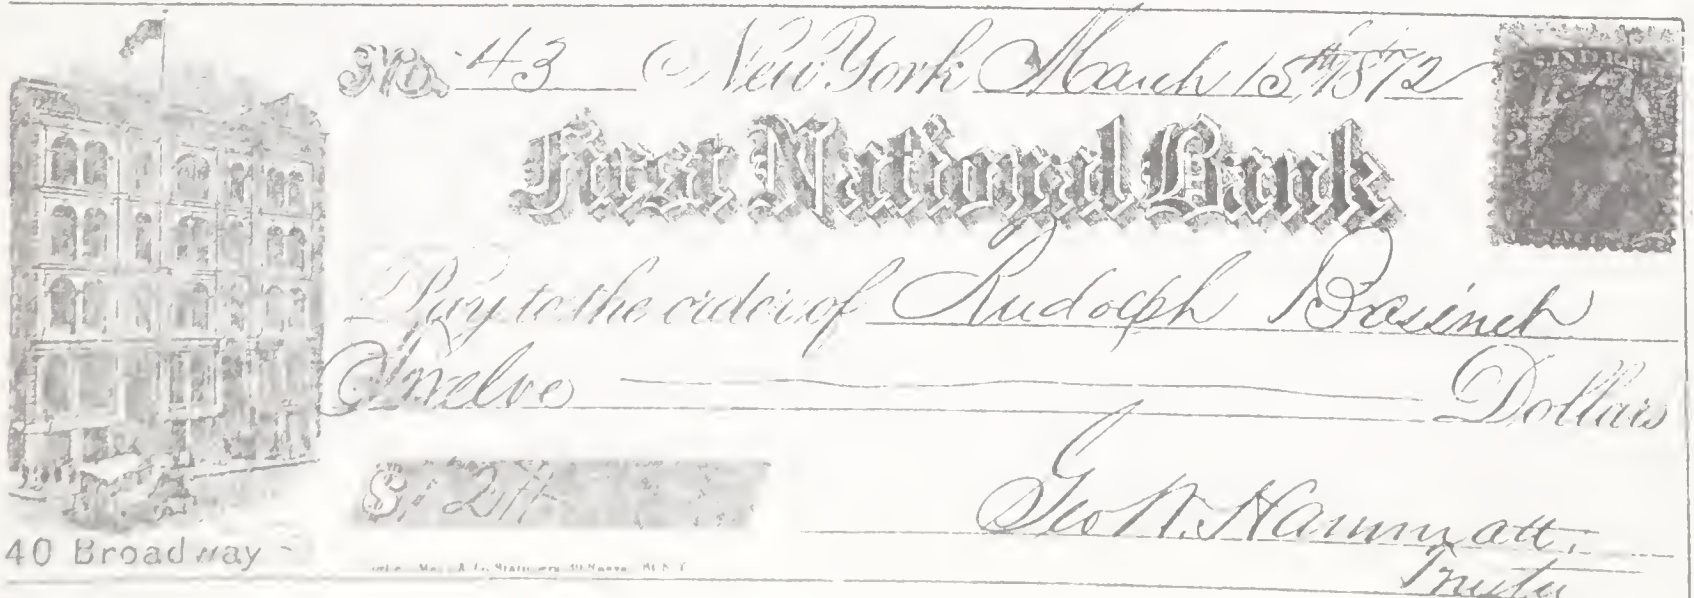 No. 43 New York March 15th 1872
First National Bank
Pay to the order of Rudolph
Twelve Dollars
$12
Geo N. Hammatt,
40 Broadway